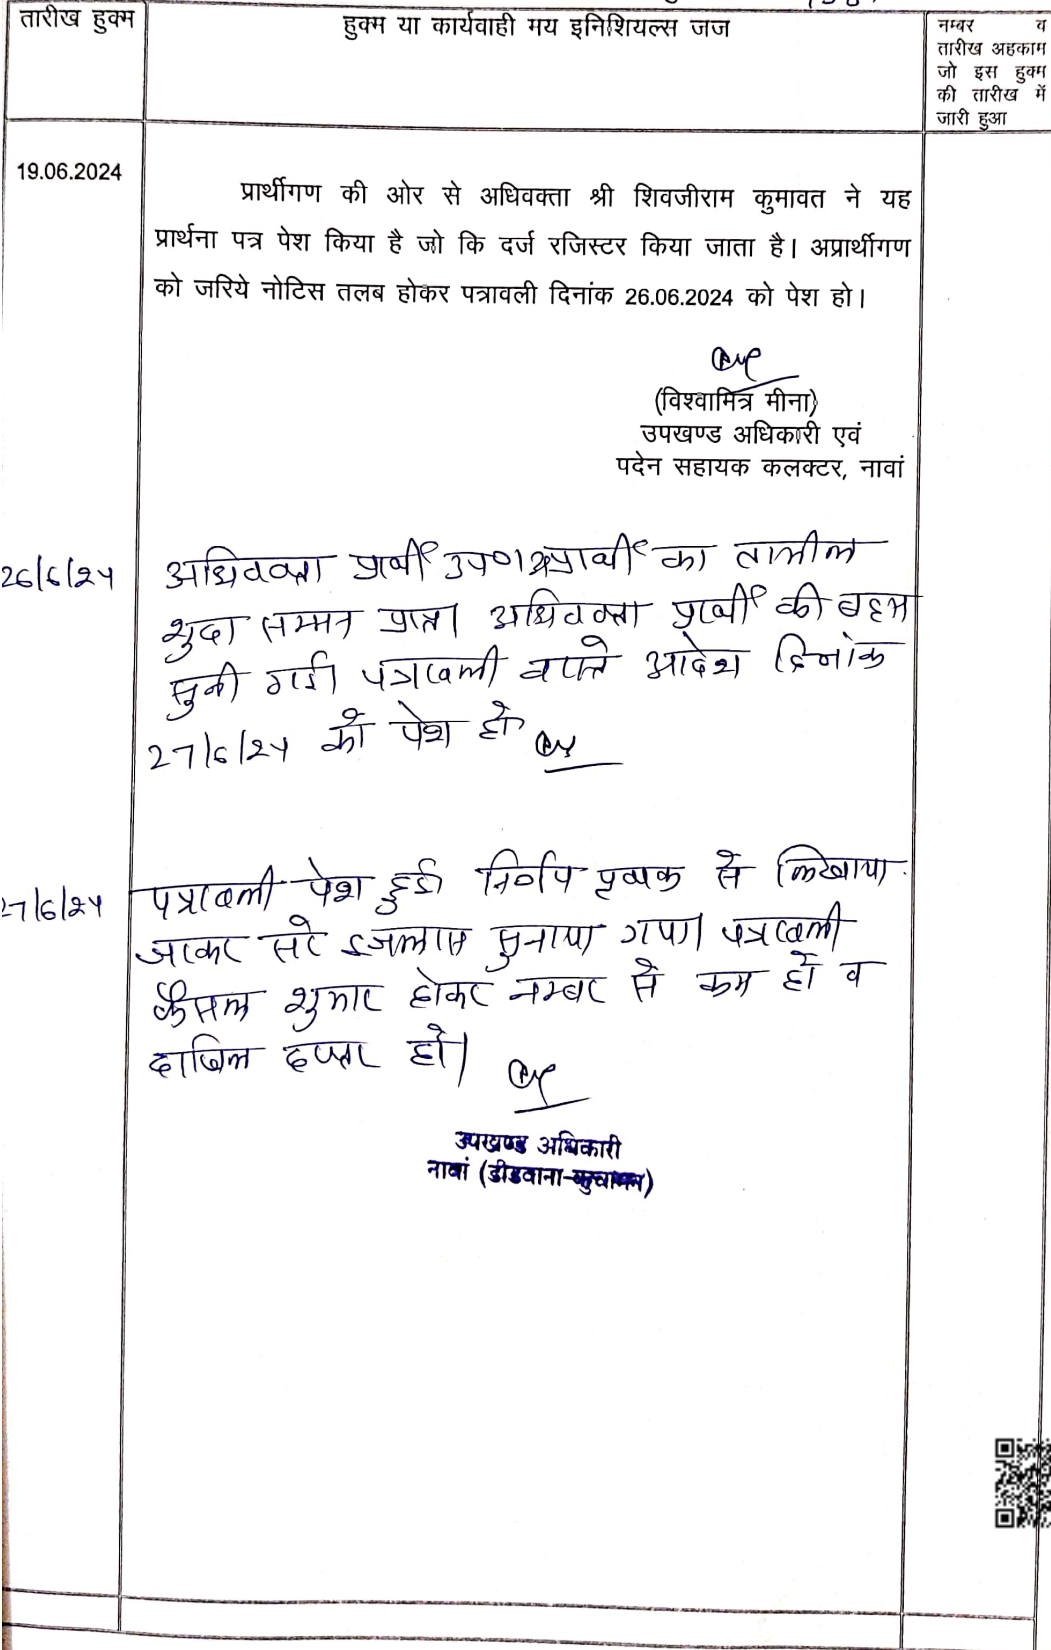 तारीख हुक्म
हुक्म या कार्यवाही मय इनिशियल्स जज
नम्बर व
तारीख अहकाम
जो इस हुक्म
की तारीख में
जारी हुआ
19.06.2024
प्रार्थीगण की ओर से अधिवक्ता श्री शिवजीराम कुमावत ने यह
प्रार्थना पत्र पेश किया है जो कि दर्ज रजिस्टर किया जाता है। अप्रार्थीगण
को जरिये नोटिस तलब होकर पत्रावली दिनांक 26.06.2024 को पेश हो।
(विश्वामित्र मीना)
उपखण्ड अधिकारी एवं
पदेन सहायक कलक्टर, नावां
26/6/24
अधिवक्ता प्रार्थी उप० अप्रार्थी का तामील
शुदा सम्मन प्राप्त। अधिवक्ता प्रार्थी की बहस
सुनी गई। पत्रावली वास्ते आदेश दिनांक
27/6/24 को पेश हो
27/6/24
पत्रावली पेश हुई। निर्णय पृथक से लिखाया
जाकर सरे इजलास सुनाया गया। पत्रावली
फैसल शुमार होकर नम्बर से कम हो व
दाखिल दफ्तर हो।
उपखण्ड अधिकारी
नावां (डीडवाना-कुचामन)